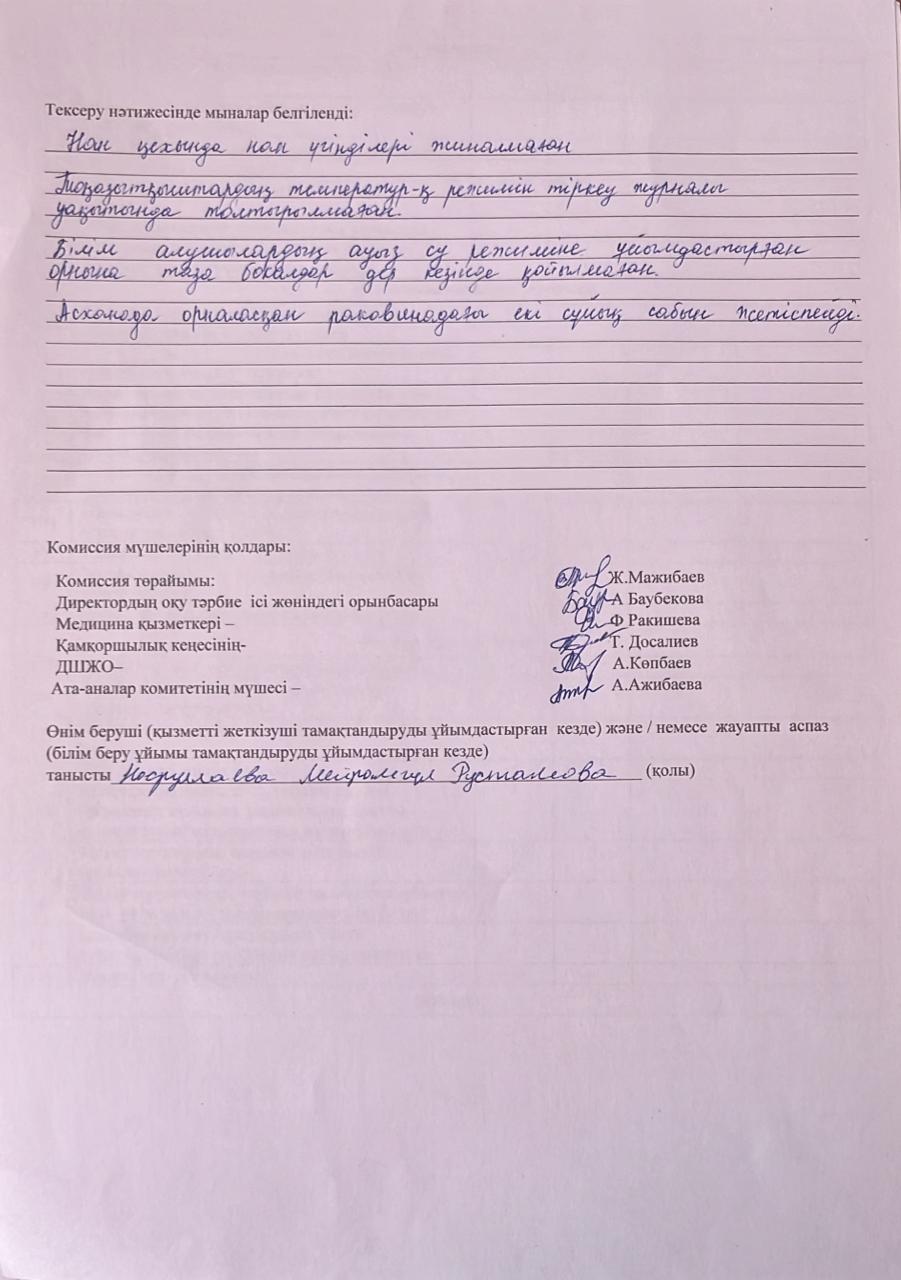 Тексеру нәтижесінде мыналар белгіленді:
Нан цехында нан үгінділері жиналмаған
Тоңазытқыштардың температур-қ режимін тіркеу журналы
уақытында толтырылмаған.
Білім алушылардың ауыз су режиміне ұйымдастырған
орнына таза бокалдар дер кезінде қойылмаған.
Асханада орналасқан раковинадағы екі сұйық сабын жетіспейді.
Комиссия мүшелерінің қолдары:
Комиссия төрайымы: Ж.Мажибаев
Директордың оқу тәрбие ісі жөніндегі орынбасары А Баубекова
Медицина қызметкері – Ф Ракишева
Қамқоршылық кеңесінің- Т. Досалиев
ДШЖО– А.Көпбаев
Ата-аналар комитетінің мүшесі – А.Ажибаева
Өнім беруші (қызметті жеткізуші тамақтандыруды ұйымдастырған кезде) және / немесе жауапты аспаз
(білім беру ұйымы тамақтандыруды ұйымдастырған кезде)
танысты Насруллаева Рустамовна (қолы)